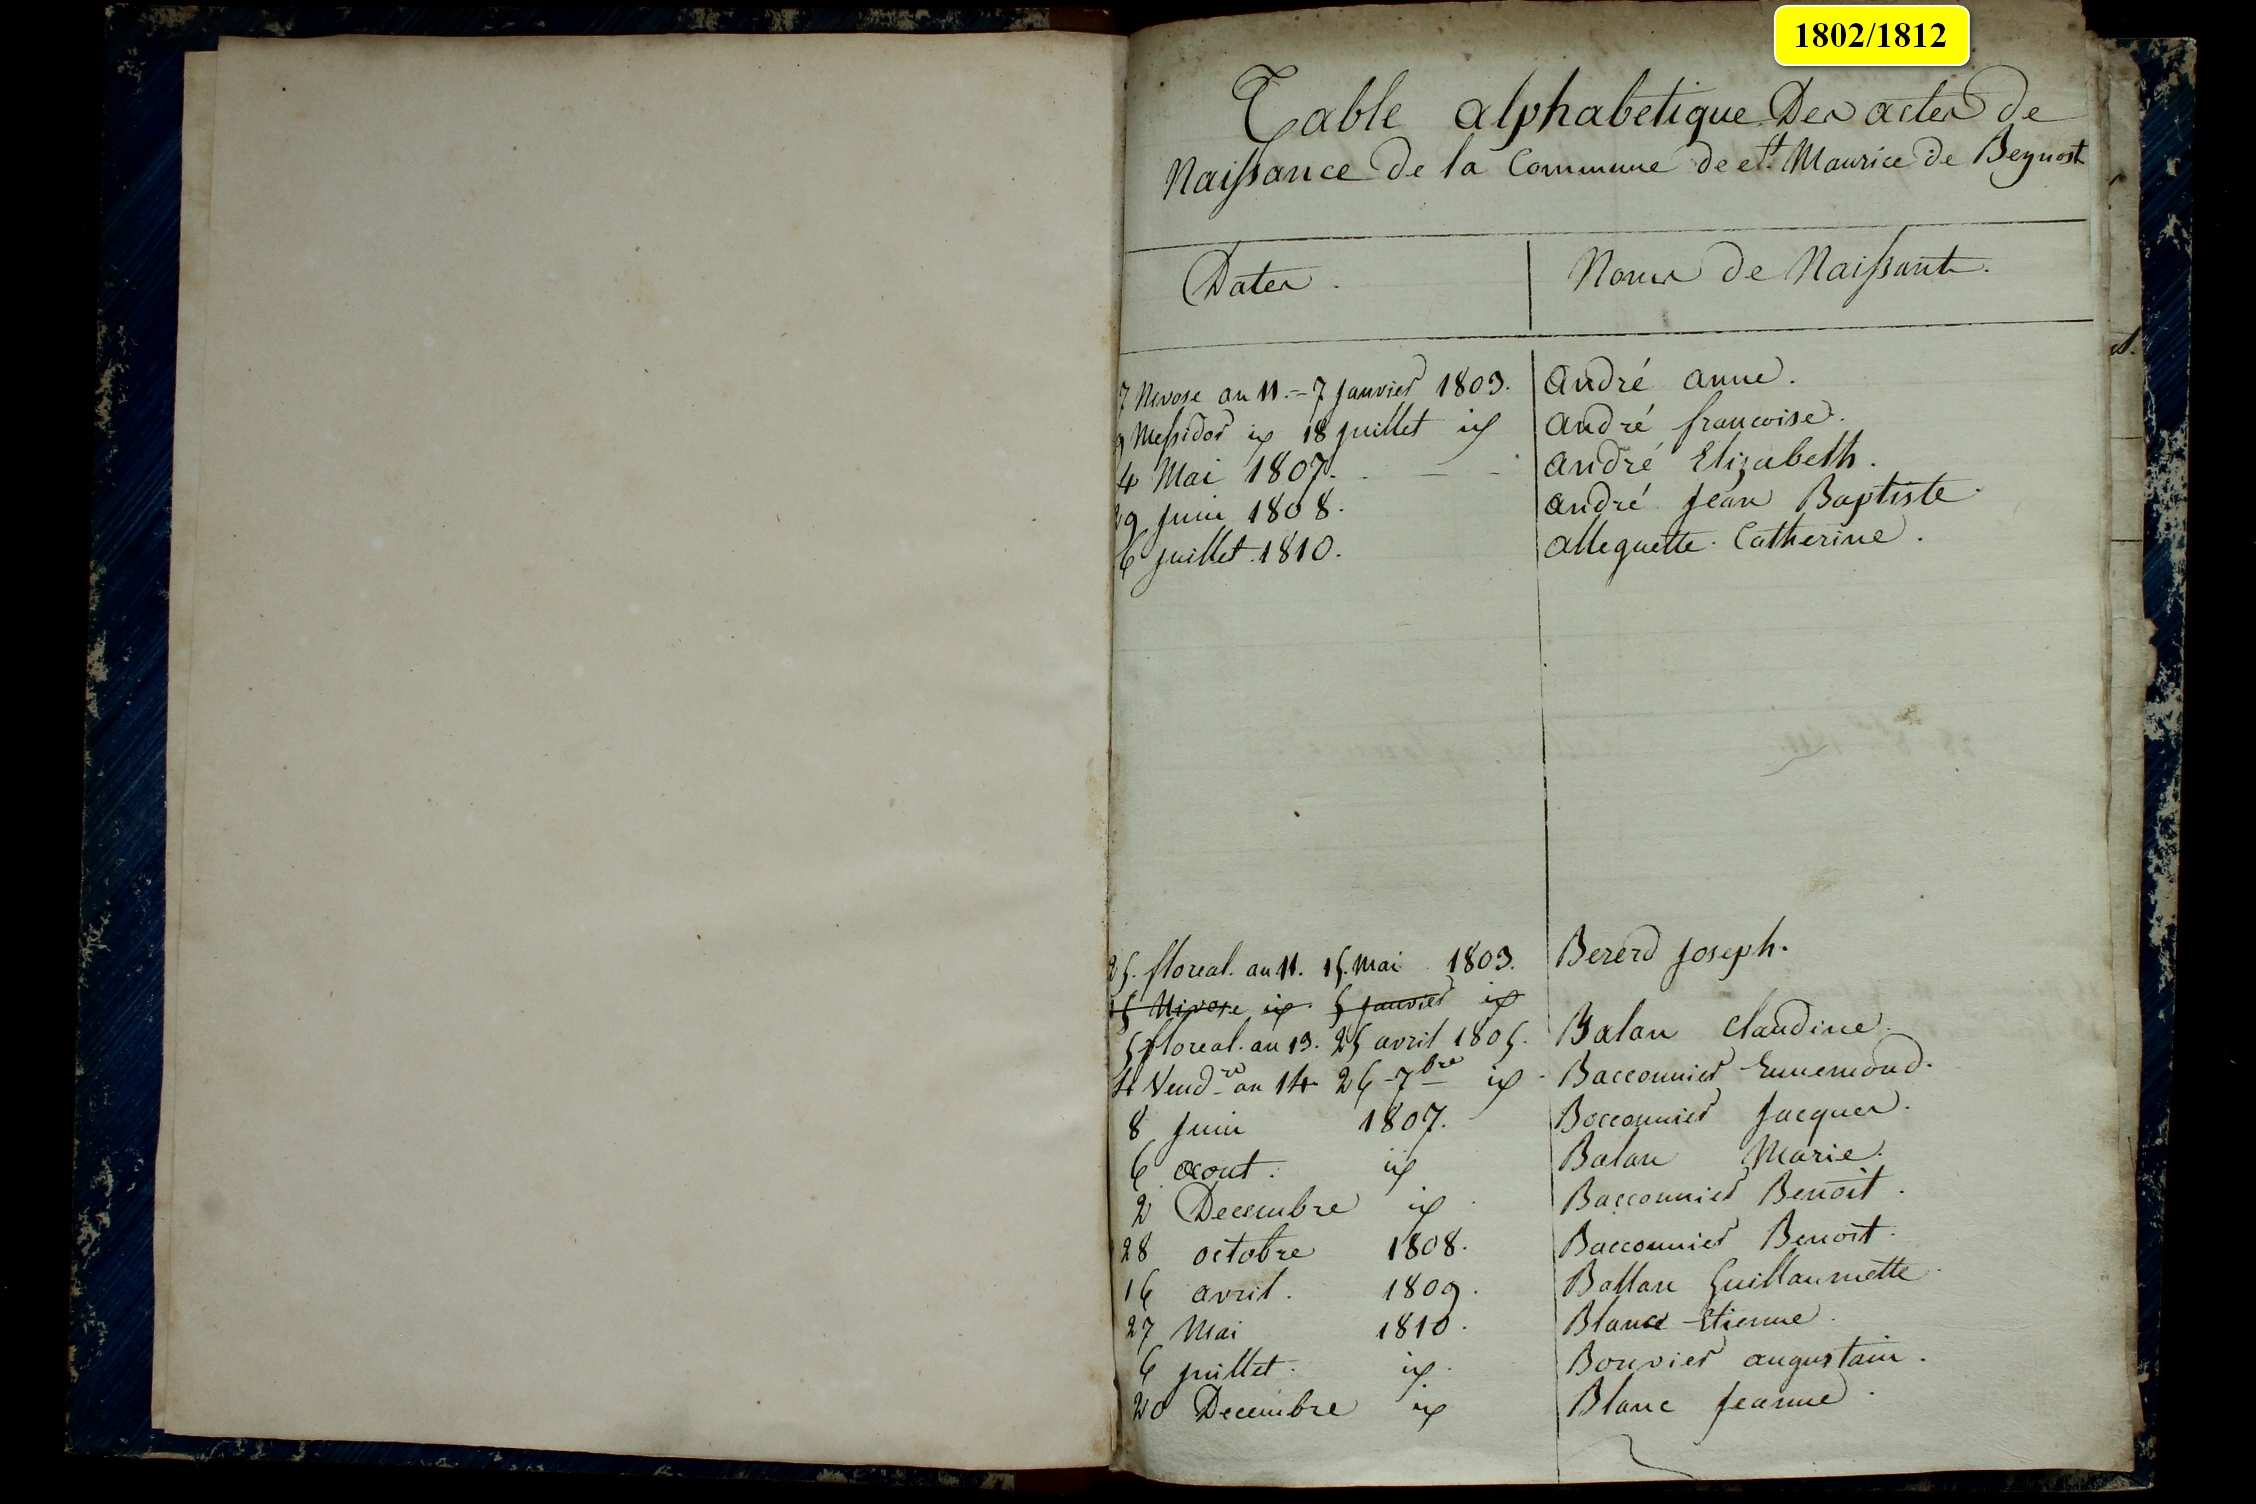 1802/1812
Table alphabetique Des actes de
Naissance de la Commune de St Maurice de Beynost
Dates.
Noms de Naissant.
7 Nivose an 11.-7 Janvier 1803. André anne.
9 Messidor id 18 juillet id André francoise.
4 Mai 1807. - - André Elizabeth.
29 Juin 1808. André Jean Baptiste.
6 juillet 1810. alleguette Catherine.
25. floreal. an 11. 15. Mai 1803. Bererd Joseph.
15 Nivose id 5 Janvier id
5 floreal. an 13. 25 avril 1805. Balan Claudine.
4 Vendre an 14 26 7bre id Bacconnier Ennemond.
8 Juin 1807. Bocconnier Jacques.
6 aout. id Balan Marie.
2 Decembre id Bacconnier Benoit.
28 octobre 1808. Bacconnier Benoit.
16 avril. 1809. Ballan Guillaumette.
27 Mai 1810. Blanc Etienne.
6 juillet. id. Bouvier augustain.
20 Decembre id Blanc Jeanne.